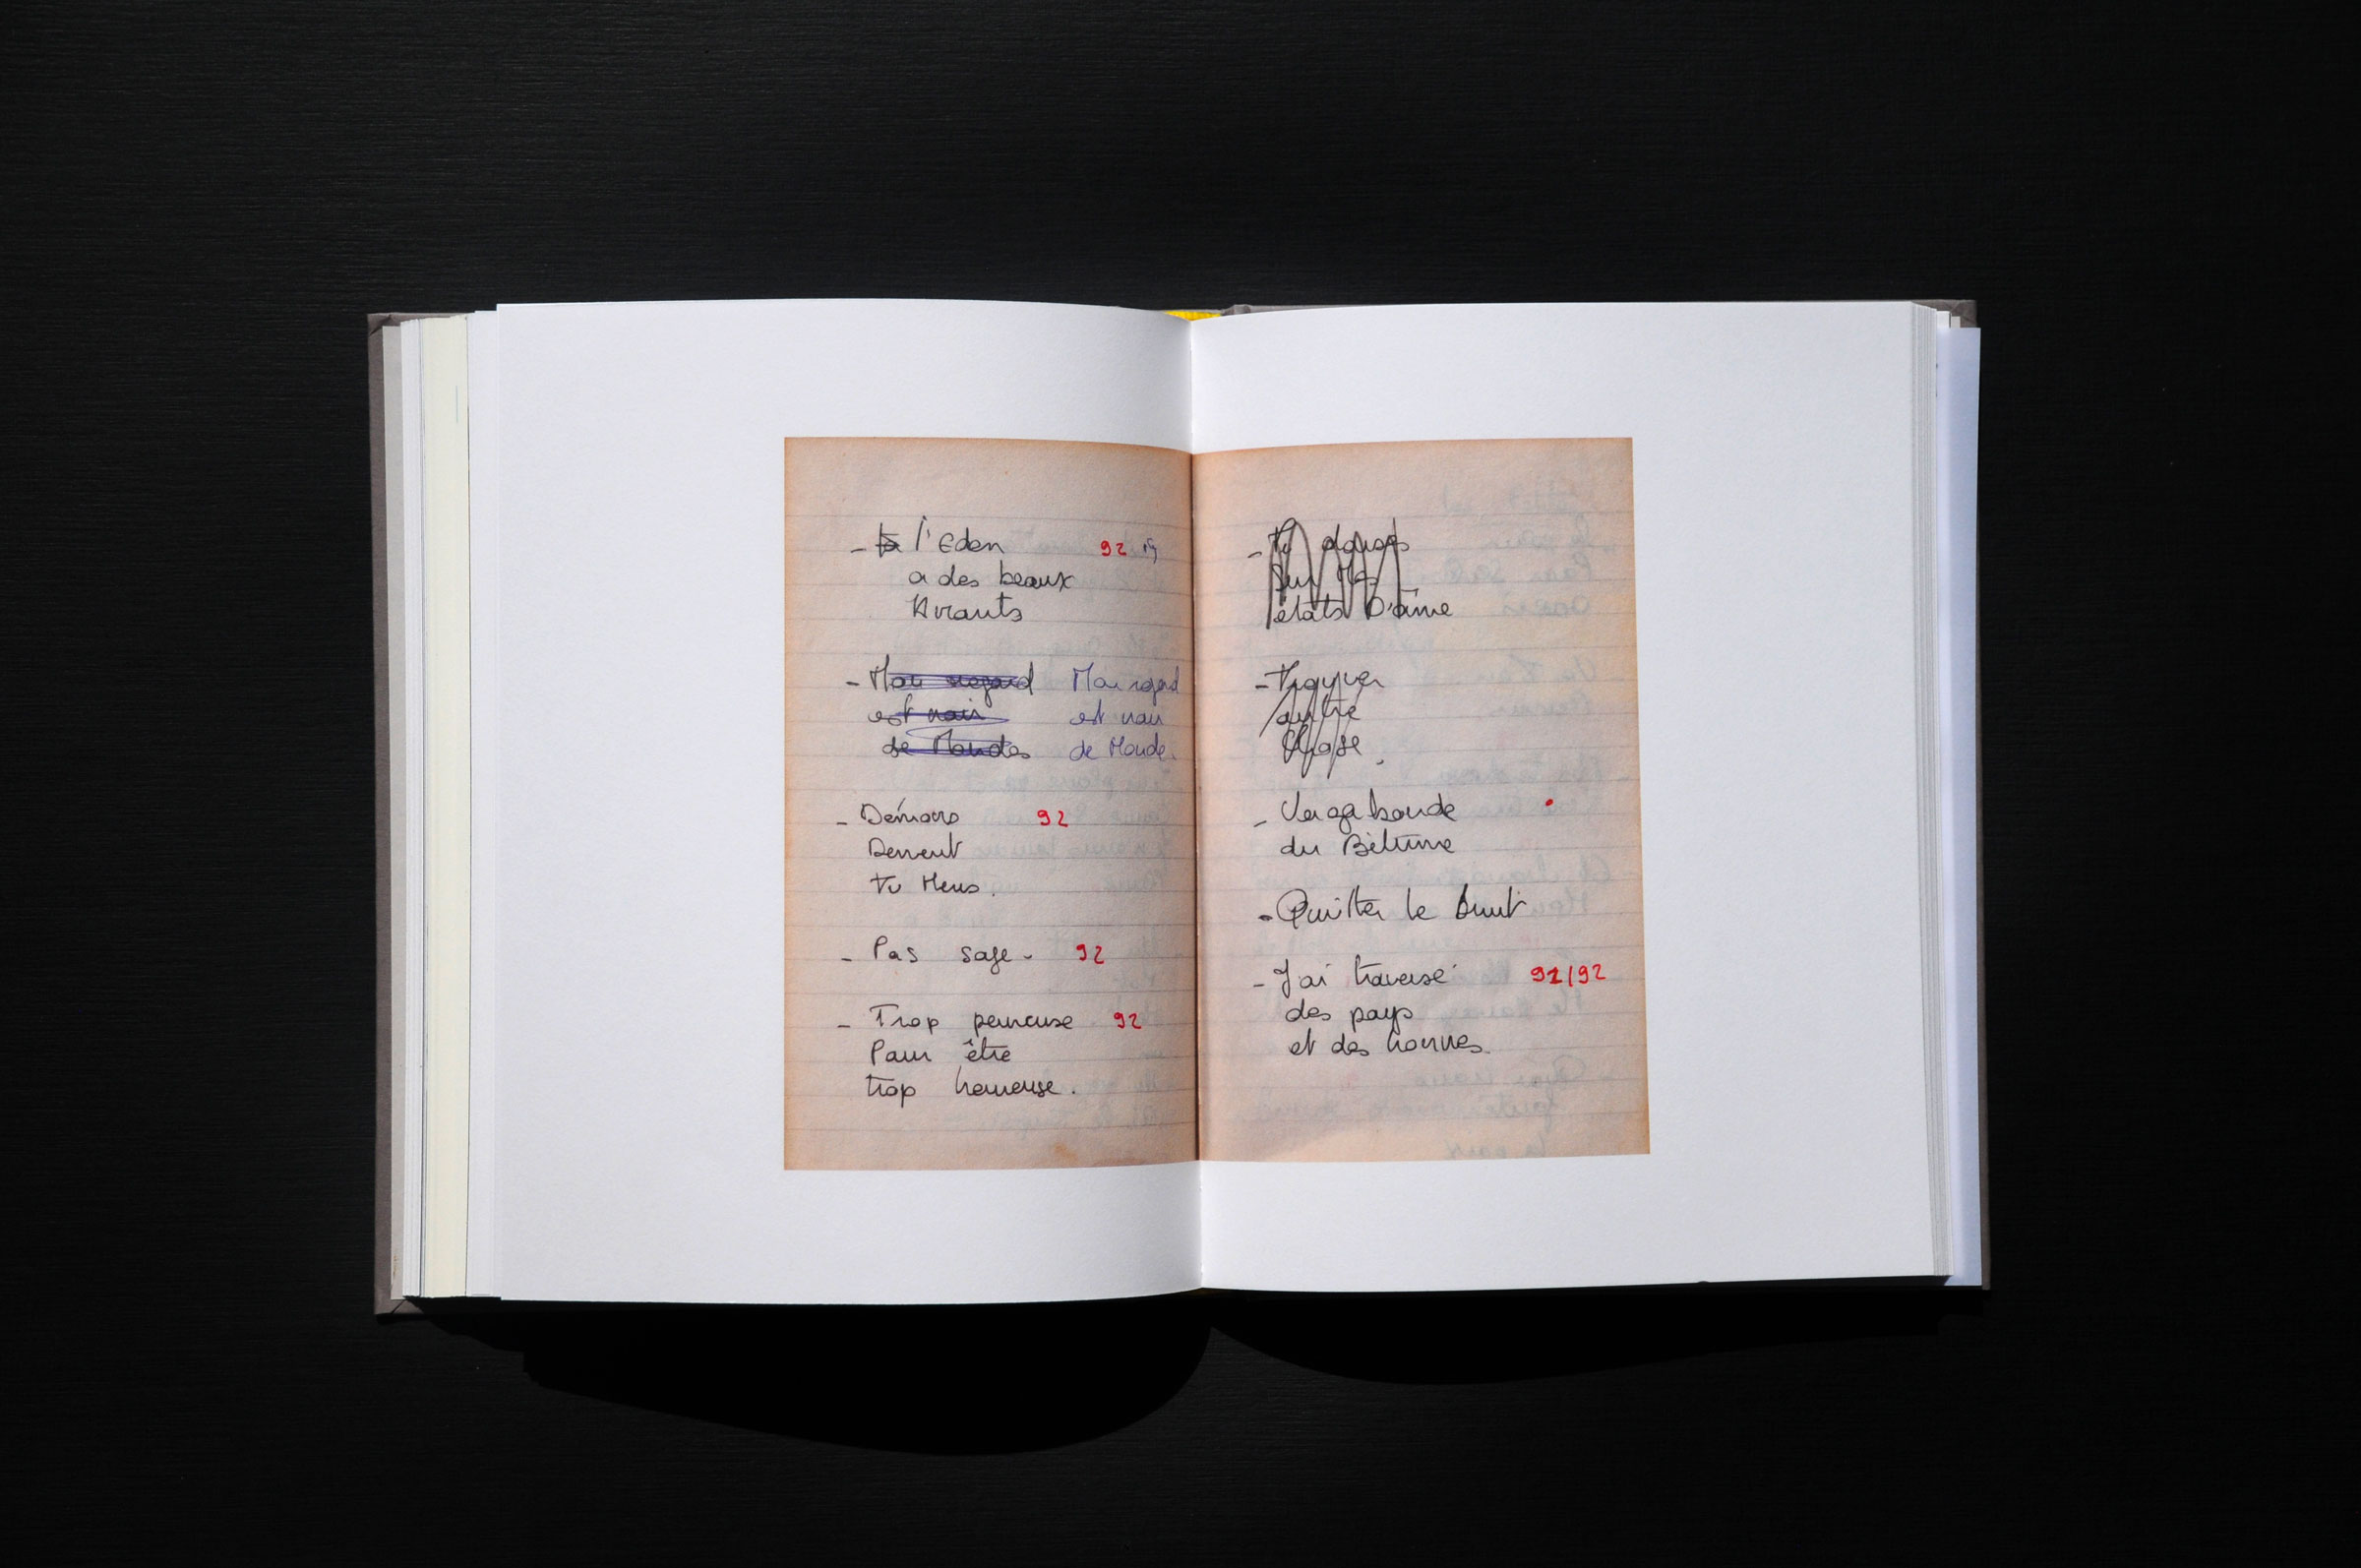 - l'Eden 92
a des beaux
Avants
- Mon regard Mon regard
est noir est noir
de Mondes de Monde.
- Démons 92
Devient
tu Mens.
- Pas sage - 92
- Trop peureuse 92
Pour être
trop heureuse.
- Tu danses
sur Mes
états D'âme
- Trouver
autre
Chose.
- Vagabonde
du Bitume
- Quitter le bruit
- J'ai traversé 91/92
des pays
et des hommes.